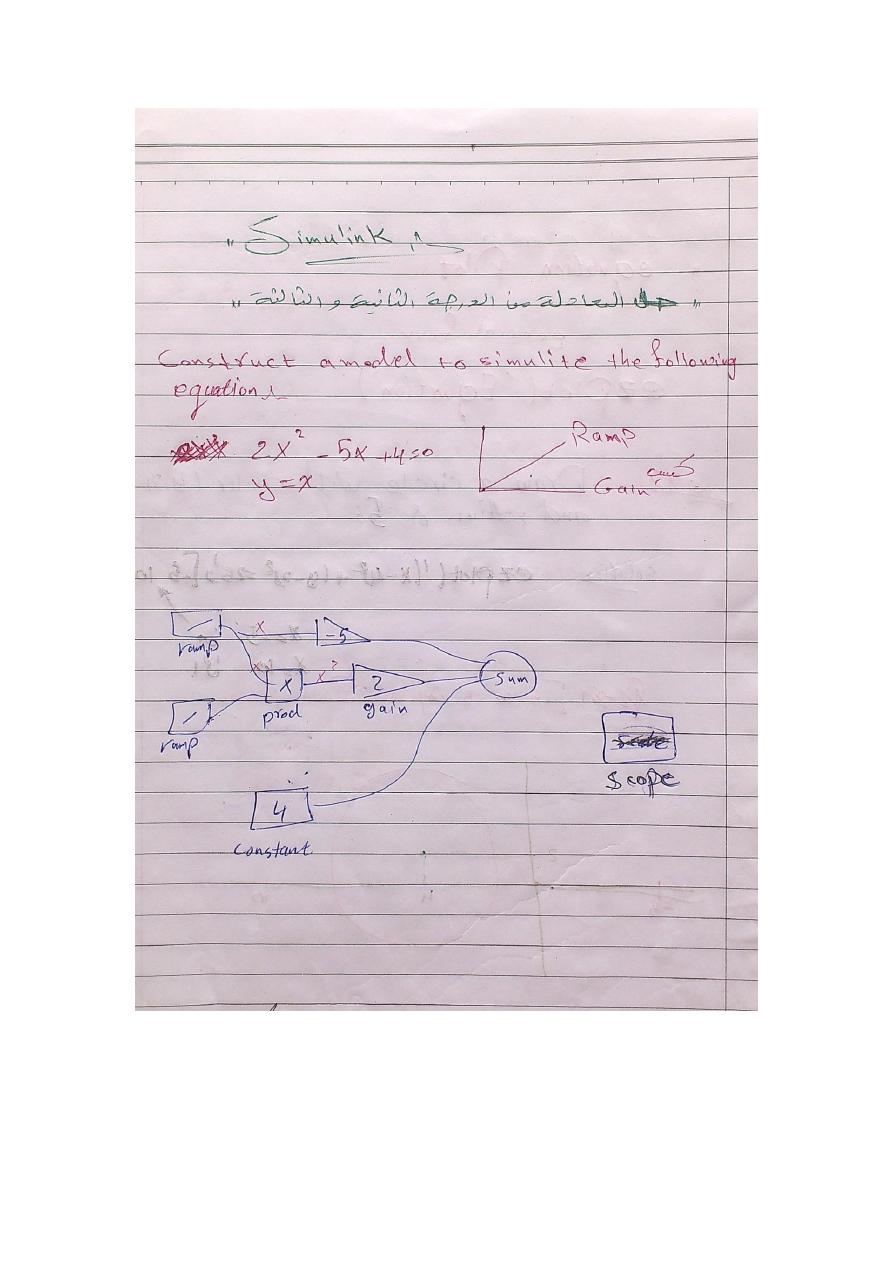 "Simulink"
"حل المعادلة من الدرجة الثانية والثالثة"
Construct a model to simulite the following
equation:-
2x² - 5x + 4 = 0
y = x
Ramp
Gain كسب
ramp
x
-5
x
x
x²
2
sum
ramp
prod
gain
scope
4
constant